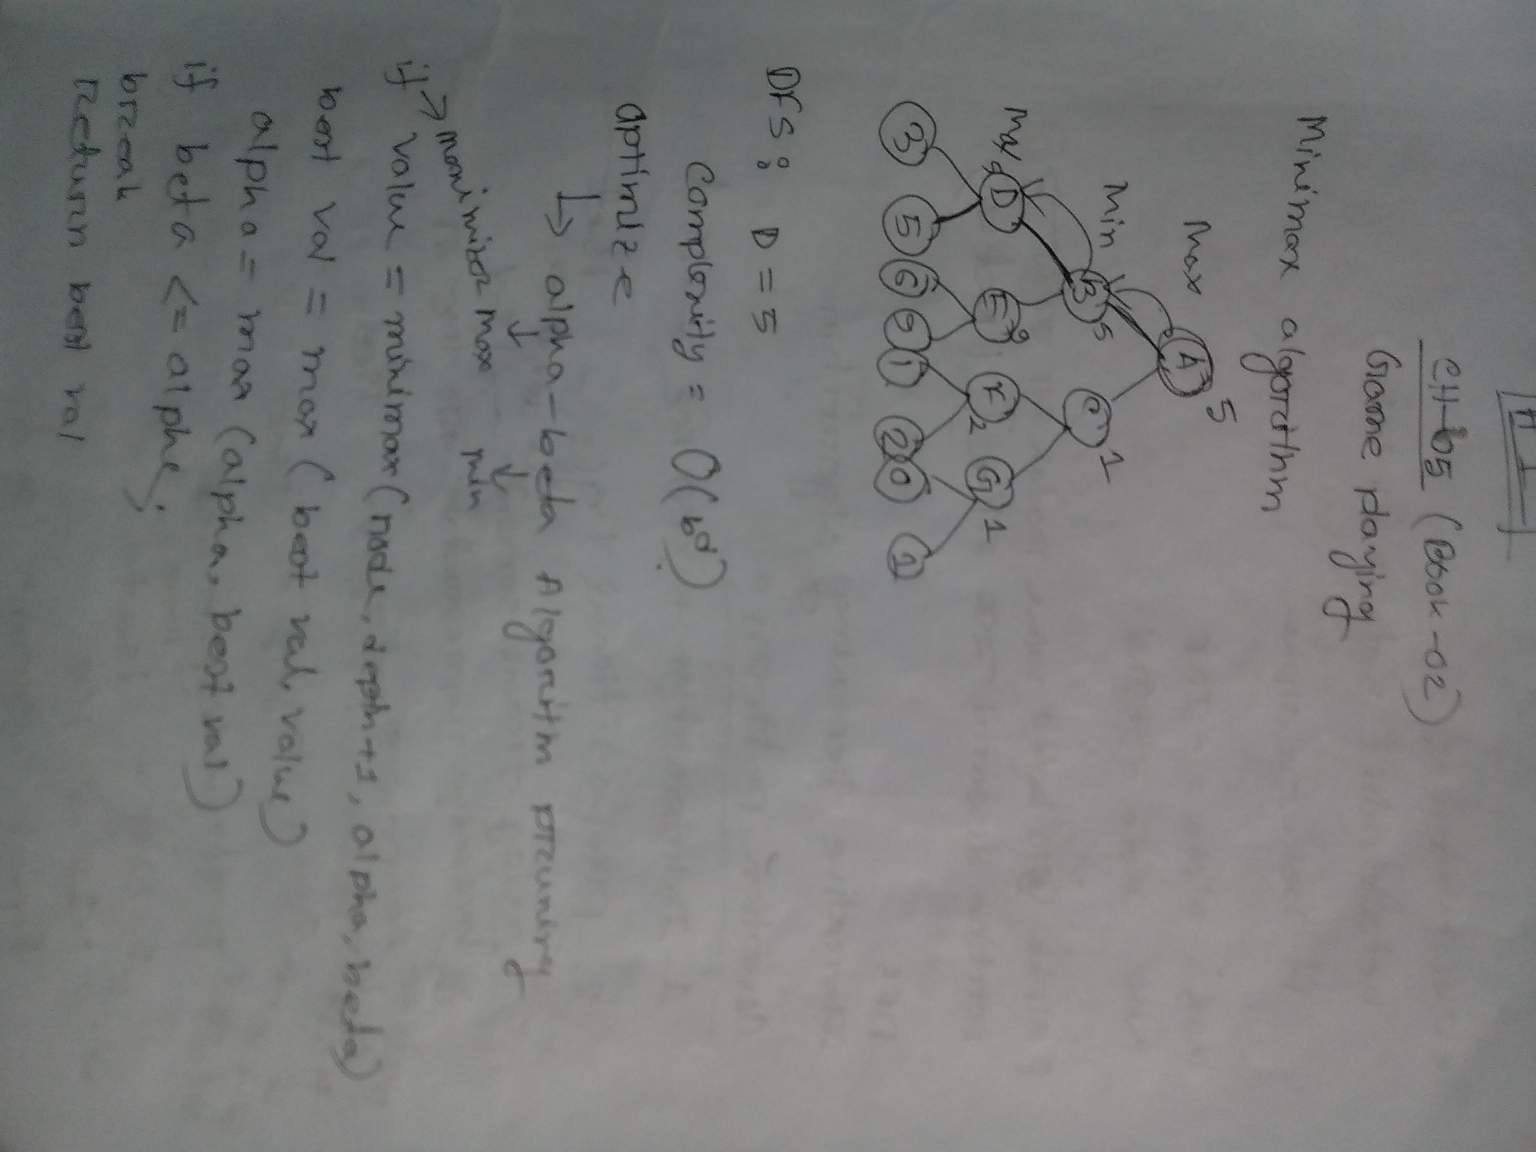 AI
CH-05 (Book-02)
Game playing
Minimax algorithm
Max
A 5
Min
B 5
C 1
Max
5 D
E 9
F 2
G 1
3 5 6 9 1 2 0 1
DFS: D = 5
Complexity = O(b^d)
optimize
↳ alpha-beta Algorithm pruning
max min
if → maximizer
value = minimax(node, depth+1, alpha, beta)
best val = max (best val, value)
alpha = max (alpha, best val)
if beta <= alpha;
break
return best val